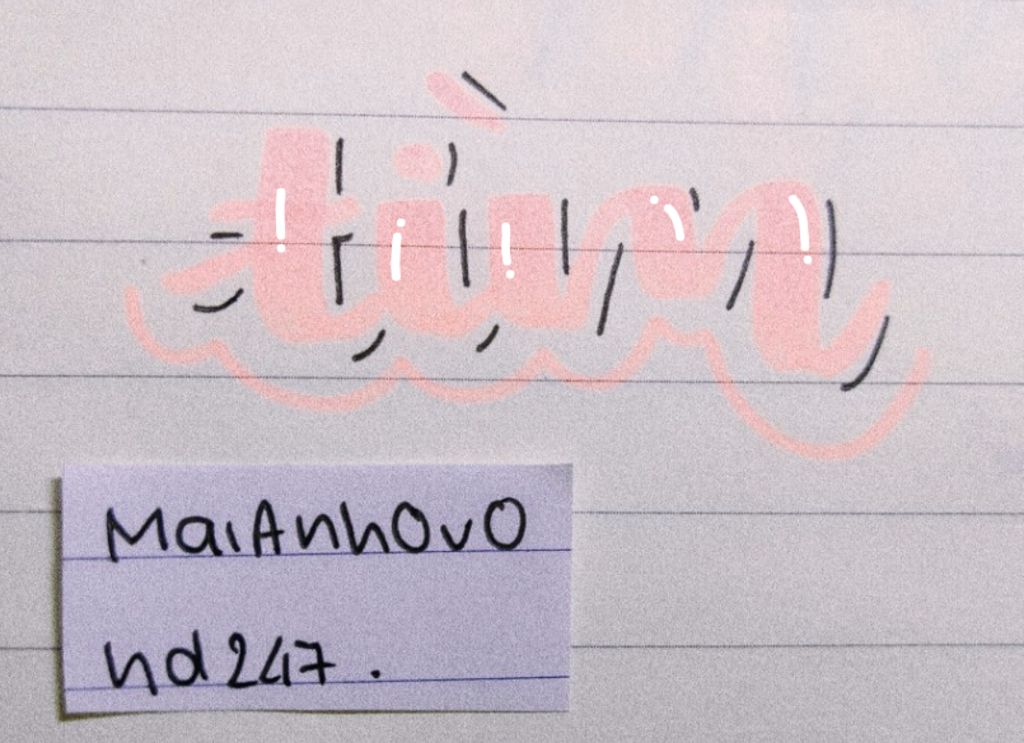 tìm
MaiAnhOvO
hd247.